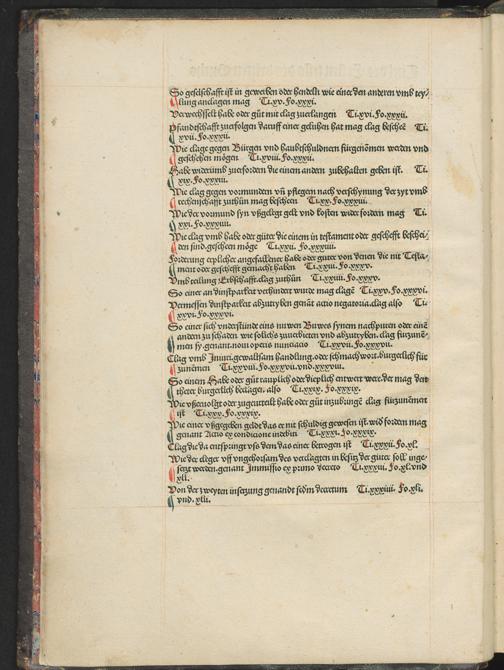 So geselschafft ist in gewerben oder hendeln wie einer den anderen vmb tey⸗
lung anclagen mag Ti.xv. Fo.xxxi.
Verwechsselt habe oder gůt mit clag zuerlangen Ti.xvi. Fo.xxxii.
Pfandtschafft zuerfolgen daruff einer gelůhen hat mag clag beschehẽ Ti.
xvii. Fo.xxxii.
Wie clage gegen Bürgen vnd haubtschuldnern fürgenõmen werden vnd
geschehen mögen Ti.xviii. Fo.xxxii.
Habe widerumb zuerfordern die einem andern zubehalten geben ist. Ti.
xix. Fo.xxxiii.
Wie clag gegen vormunden vñ pflegern nach verschynung der zyt vmb
rechenschafft zuthůn mag bescheen Ti.xx. Fo.xxxiii.
Wie der vormund syn vßgelegt gelt vnd kosten wider fordern mag Ti.
xxi. Fo.xxxiii.
Wie clag vmb habe oder güter die einem in testament oder geschefft beschei⸗
den sind, gescheen möge Ti.xxii. Fo.xxxiiii.
Forderung erplicher angefallener habe oder güter von denen die nit Testa⸗
ment oder geschefft gemacht haben Ti.xxiii. Fo.xxxv.
Vmb teilung Erbschafft, clag zuthůn Ti.xxiiii. Fo.xxxv.
So einer an dinstparkeit verhindert würde mag clagẽ Ti.xxv. Fo.xxxvi.
Vermessen dinstparkeit abzutryben genãt actio negatoria, clag also Ti.
xxvi. Fo.xxxvi.
So einer sich vnderstünde eins nuwen Buwes synem nachpuren oder einẽ
andern zu schaden wie solichs zuuerbieten vnd abzutryben, clag fürzunẽ⸗
men sy, genant, noui operis nunciacio Ti.xxvii. Fo.xxxvi.
Clag vmb Iniuri, gewaltsam handlung, oder schmach wort, burgerlich für
zunẽmen Ti.xxviii. Fo.xxxvii. vnd.xxxviii.
So einem Habe oder gůt rauplich oder dieplich entwert were, der mag den
theter burgerlich beclagen, also Ti.xxix. Fo.xxxix.
Wie vßteuolgt oder zugeurteilt habe oder gůt inzubringẽ clag fürzunemẽt
ist Ti.xxx. Fo.xxxix.
Wie einer vßgegeben gelde das er nit schuldig gewesen ist, wid fordern mag
genant Actio ex condicione indebiti Ti.xxxi. Fo.xxxix.
Clag die da entspringt vß dem das einer betrogen ist Ti.xxxii. Fo.xl.
Wie der cleger vff vngehorsam des verclagten in besitz der güter soll inge⸗
setzt werden, genant Immissio ex primo decreto Ti.xxxiii. Fo.xl. vnd
xli.
Von der zweyten insetzung genandt scdm decretum Ti.xxxiiii. Fo.xli.
vnd. xlii.